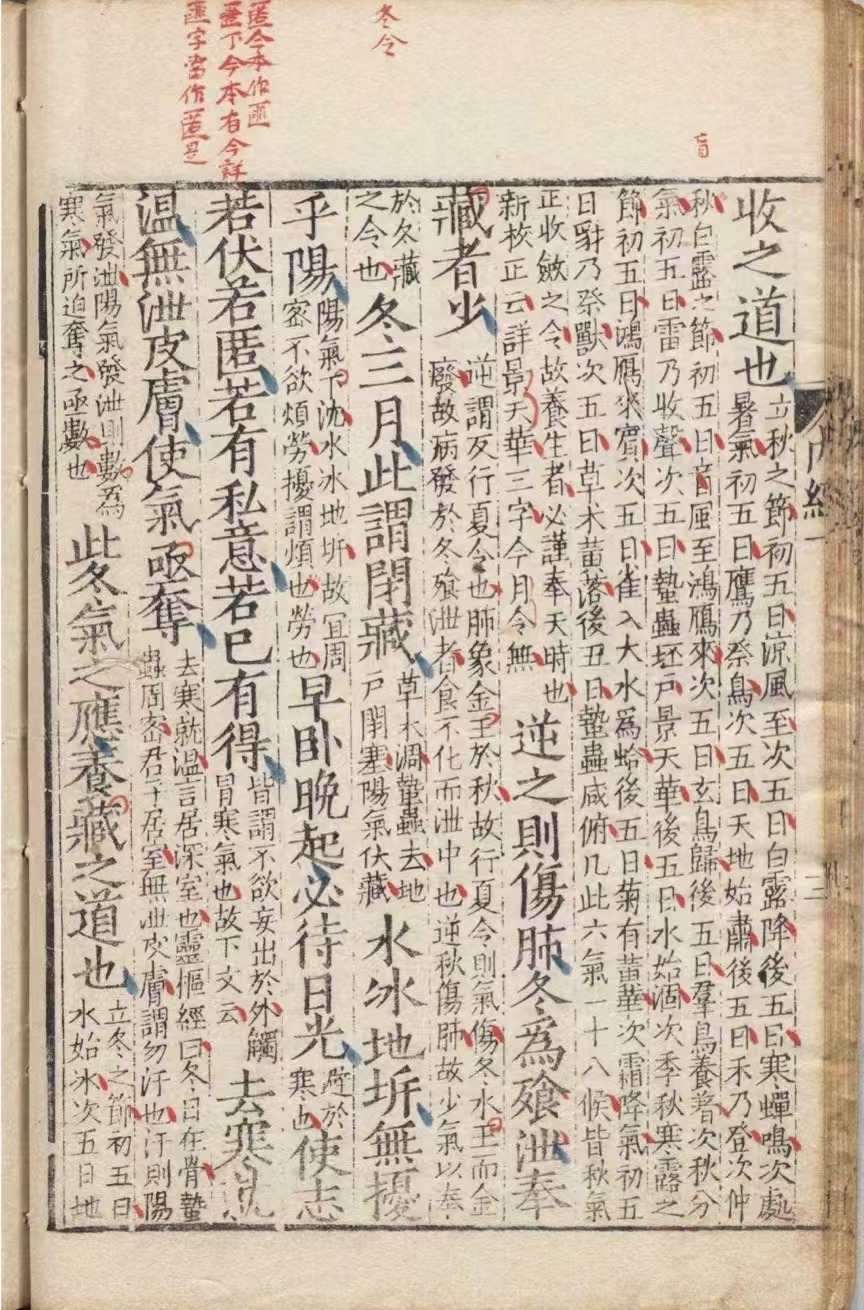 内經一
三
盲
冬令
匿今本作匪
匿下今本有今詳
匪字當作匿是
收之道也立秋之節初五日涼風至次五日白露降後五日寒蟬鳴次處
暑氣初五日鷹乃祭鳥次五日天地始肅後五日禾乃登次仲
秋白露之節初五日音風至鴻鴈來次五日玄鳥歸後五日羣鳥養羞次秋分
氣初五日雷乃收聲次五日蟄蟲坯戸景天華後五日水始涸次季秋寒露之
節初五日鴻鴈來賓次五日雀入大水爲蛤後五日菊有黃華次霜降氣初五
日豺乃祭獸次五日草木黃落後五日蟄蟲咸俯凡此六氣一十八候皆秋氣
正收斂之令故養生者必謹奉天時也
新校正云詳景天華三字今月令無
逆之則傷肺冬爲飱泄奉
藏者少逆謂反行夏令也肺象金王於秋故行夏令則氣傷冬水王而金
廢故病發於冬飱泄者食不化而泄中也逆秋傷肺故少氣以奉
於冬藏
之令也
冬三月此謂閉藏草木凋蟄蟲去地
戸閉塞陽氣伏藏
水冰地坼無擾
乎陽陽氣下沈水冰地坼故宜周
密不欲煩勞擾謂煩也勞也
早卧晚起必待日光避於
寒也
使志
若伏若匿若有私意若已有得皆謂不欲妄出於外觸
冒寒氣也故下文云
去寒就
温無泄皮膚使氣亟奪去寒就温言居深室也靈樞經曰冬日在骨蟄
蟲周密君子居室無泄皮膚謂勿汗也汗則陽
氣發泄陽氣發泄則數爲
寒氣所迫奪之亟數也
此冬氣之應養藏之道也立冬之節初五日
水始冰次五日地